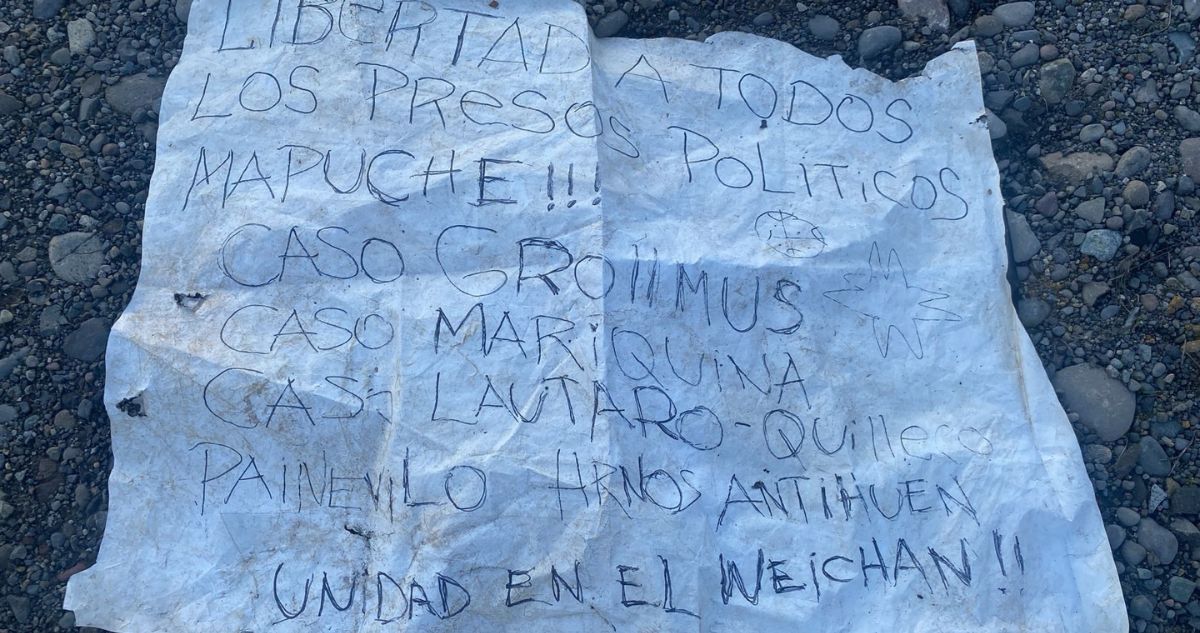 LIBERTAD A TODOS
LOS PRESOS POLITICOS
MAPUCHE!!!
CASO GROLLMUS
CASO MARIQUINA
CASO LAUTARO-QUILLECO
PAINEVILO HRNOS ANTIHUEN
UNIDAD EN EL WEICHAN!!